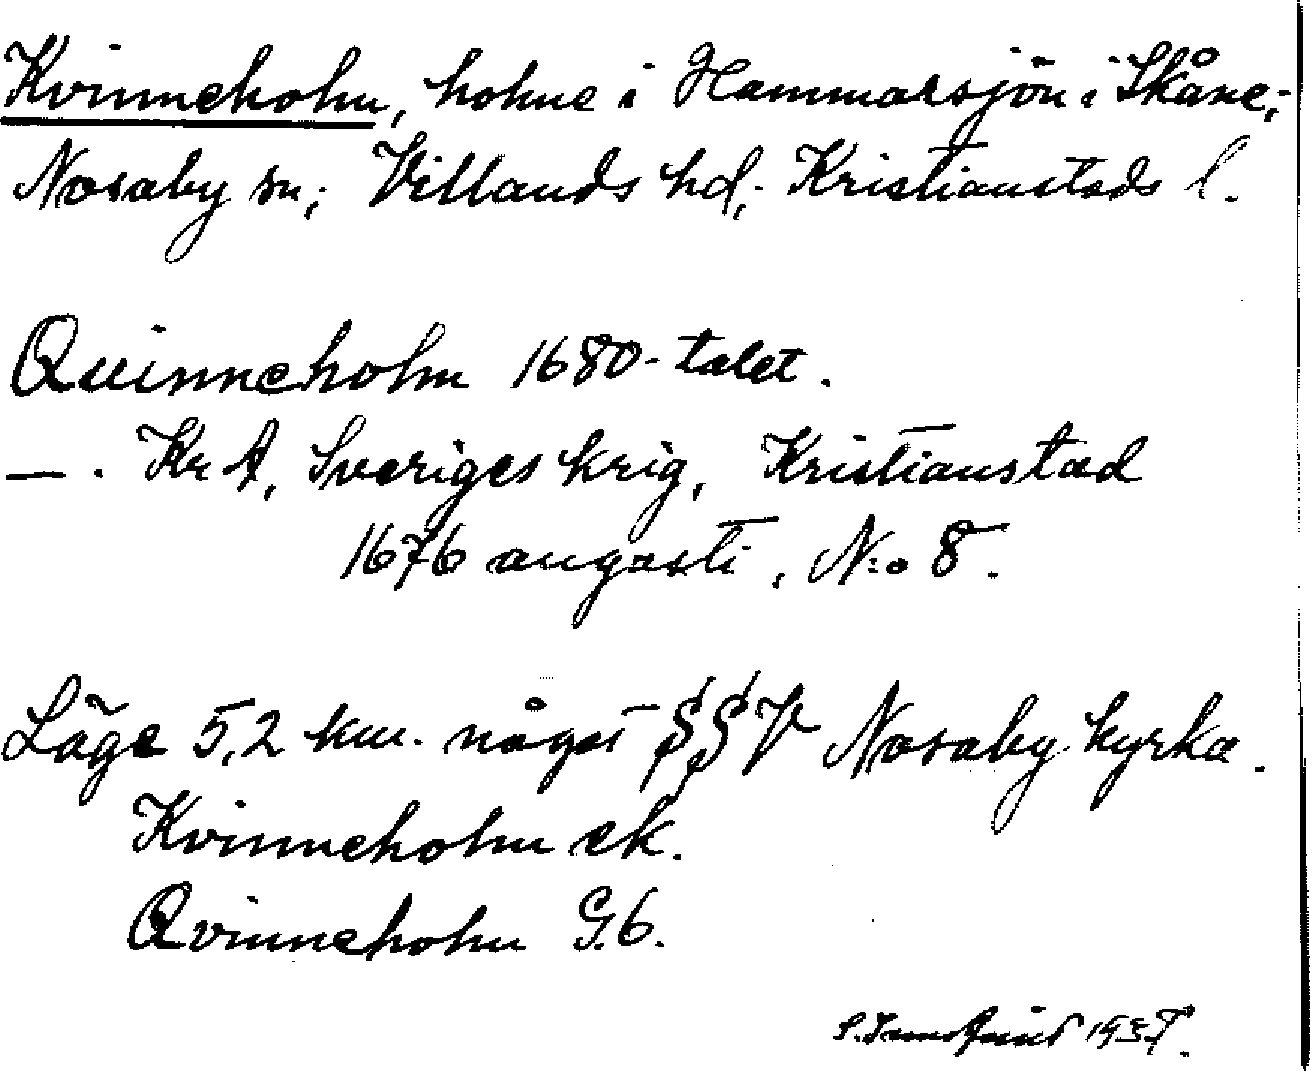 Kvinneholm, holme i Hammarsjön i Skåne;
Nosaby sn; Villands hd; Kristianstads l.
Quinneholm 1680-talet.
— . KrA, Sveriges krig, Kristianstad
1676 augusti, N:o 8.
Läge 5,2 km. något SSV Nosaby kyrka.
Kvinneholm ek.
Qvinneholm G.6.